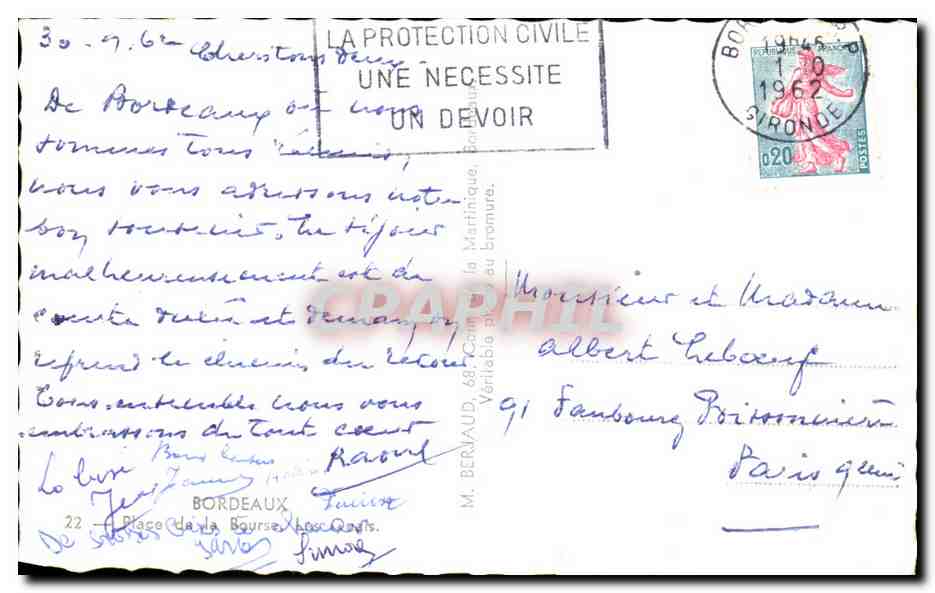 30-9-62
Chers tous deux
De Bordeaux où nous
sommes tous réunis,
nous vous adressons notre
bon souvenir. Le séjour
malheureusement est de
courte durée et demain on
reprend le chemin du retour
Tous ensemble nous vous
embrassons de tout cœur
Raoul
Simone
LA PROTECTION CIVILE
UNE NECESSITE
UN DEVOIR
19H45
1-10
1962
GIRONDE
REPUBLIQUE FRANÇAISE
0,20
POSTES
Monsieur et Madame
Albert Leboeuf
91 Faubourg Poissonnière
Paris 9ème
M. BERJAUD, 68, Cours la Martinique, Bordeaux
Véritable photo au bromure.
CPAPHIL
BORDEAUX
22 — Place de la Bourse, Les Quais.